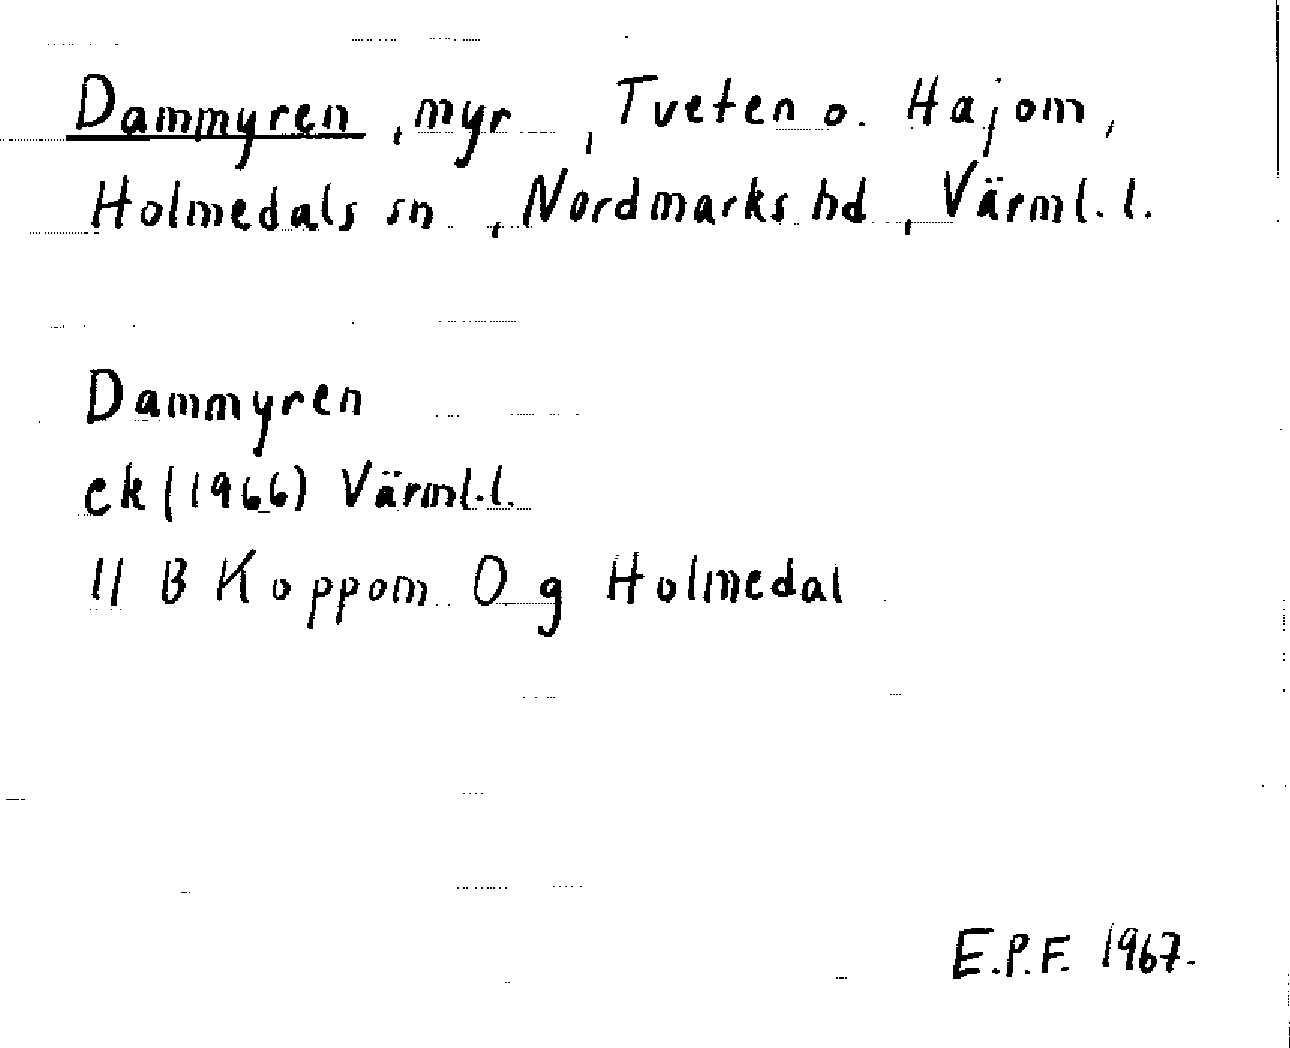 Dammyren, myr, Tveten o. Hajom,
Holmedals sn, Nordmarks hd, Värml. l.
Dammyren
ek (1966) Värml. l.
11 B Koppom O g Holmedal
E.P.F. 1967.